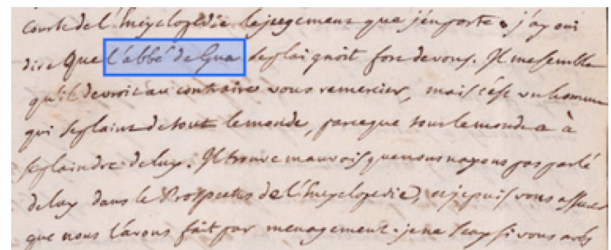 compte de l'Encyclopedie le jugement que j'en porte. j'ay oui
dire que l'abbé de Gua se plaignoit fort de vous. Il me semble
qu'il devroit au contraire vous remercier, mais c'est un homme
qui se plaint de tout le monde, parceque tout le monde a à
se plaindre de luy. Il trouve mauvais que nous n'ayons pas parlé
de luy dans le Prospectus de l'Encyclopedie, et je puis vous assurer
que nous l'avons fait par menagement. je ne scay si vous avés